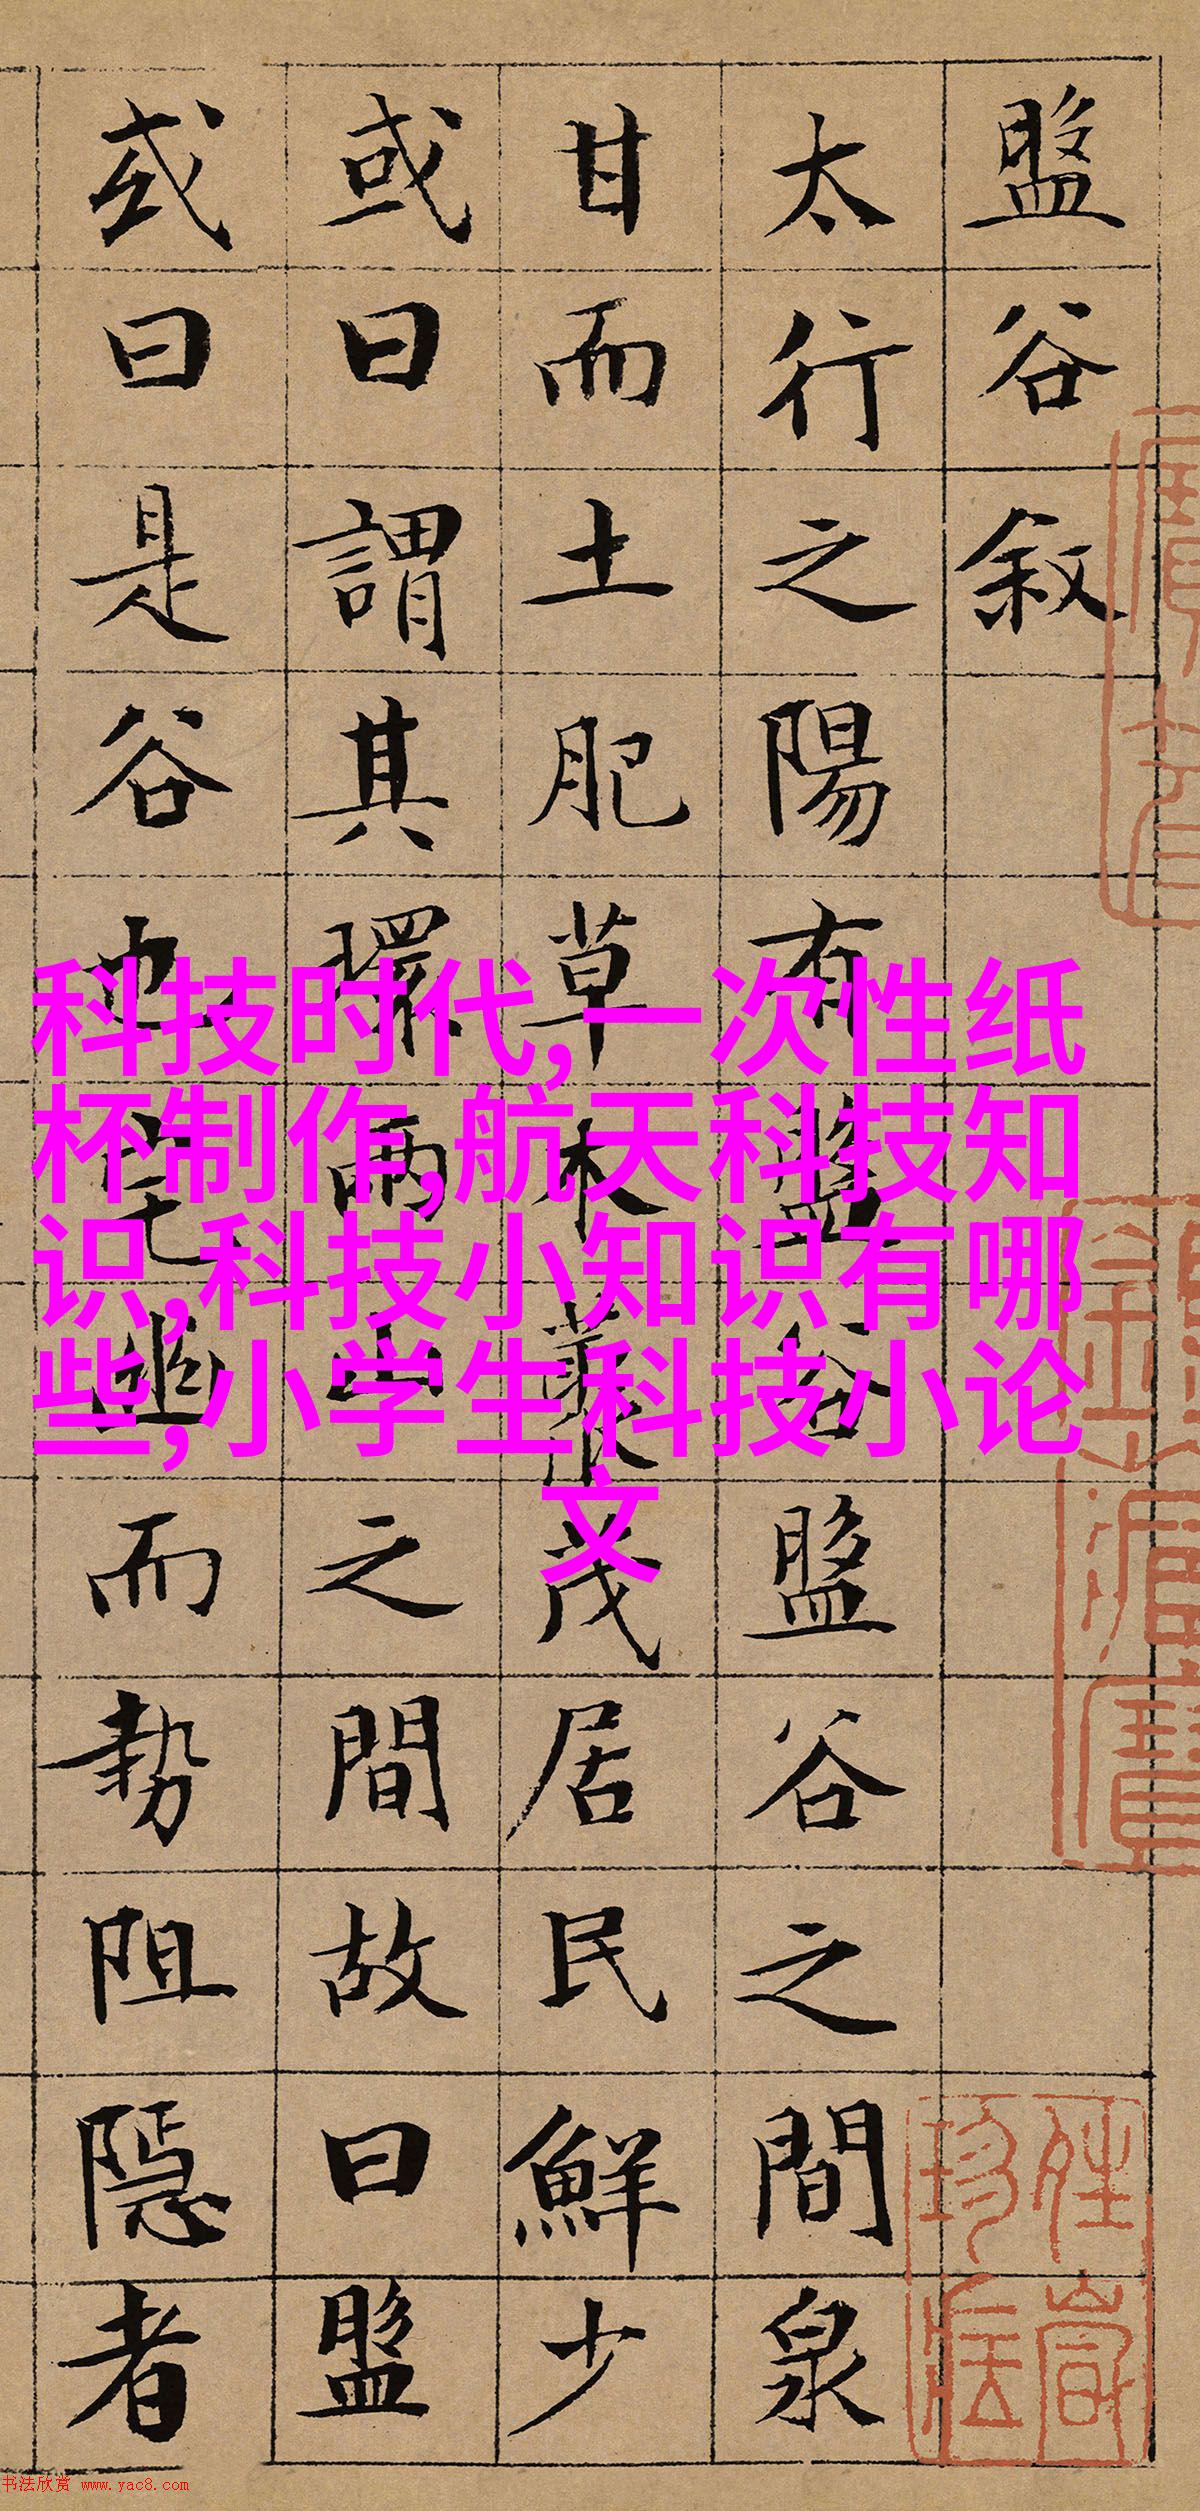 盤谷敘
太行之陽有盤谷盤谷之間泉
甘而土肥草木叢茂居民鮮少
或曰謂其環兩山之間故曰盤
或曰是谷也宅幽而勢阻隱者
科技时代,一次性纸
杯制作,航天科技知
识,科技小知识有哪
些,小学生科技小论
文
书法欣赏 www.yac8.com